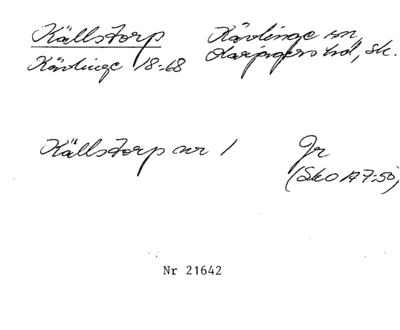 Källstorp Kävlinge sn,
Kävlinge 18-68 Harjagers hd, Sk.
Källstorp nr 1 Jr
(SkO 17:50)
Nr 21642